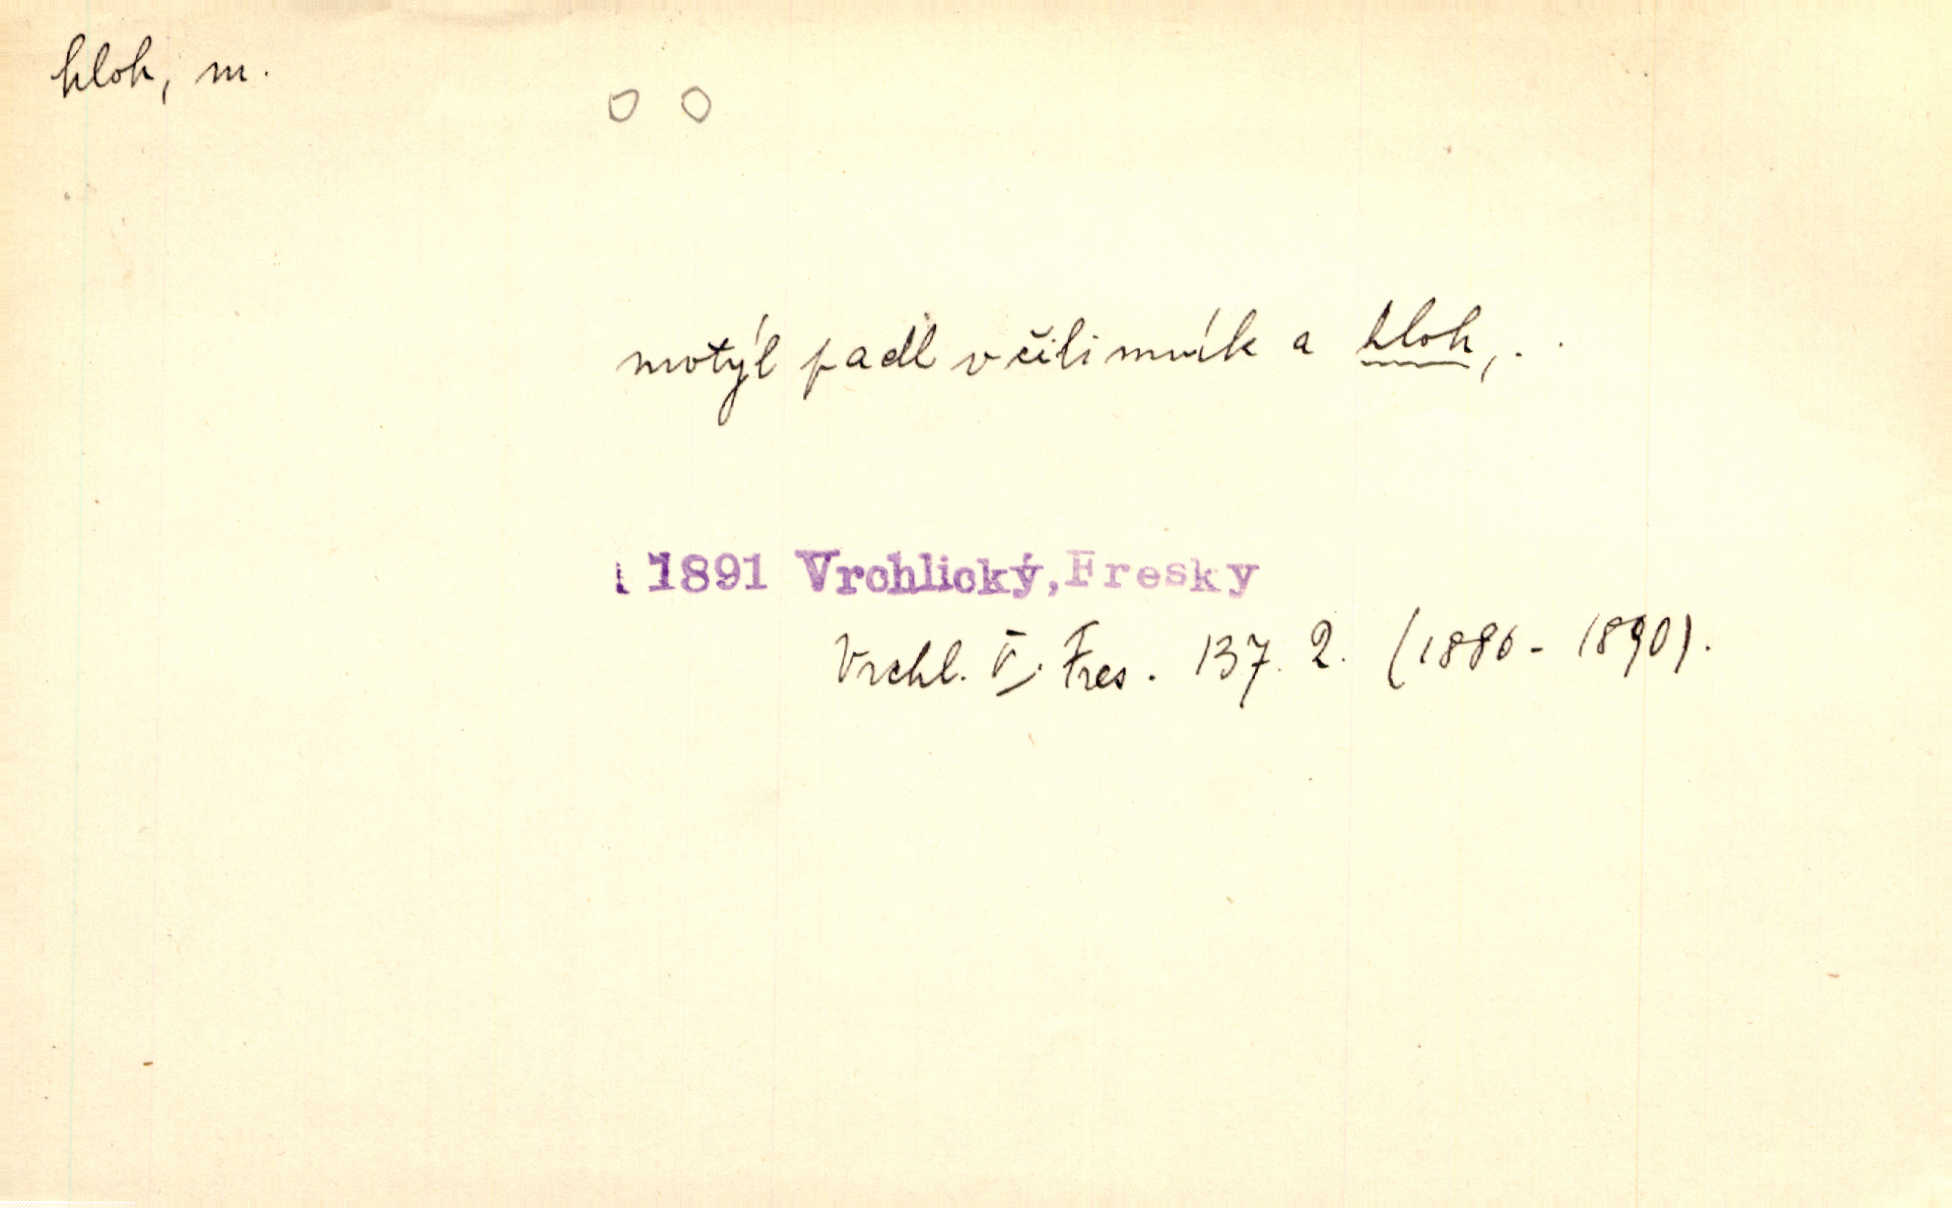 hloh, m.
motýl padl v čilimník a hloh, . .
1891 Vrchlický, Fresky
Vrchl. V. Fres. 137. 2. (1886 - 1890).